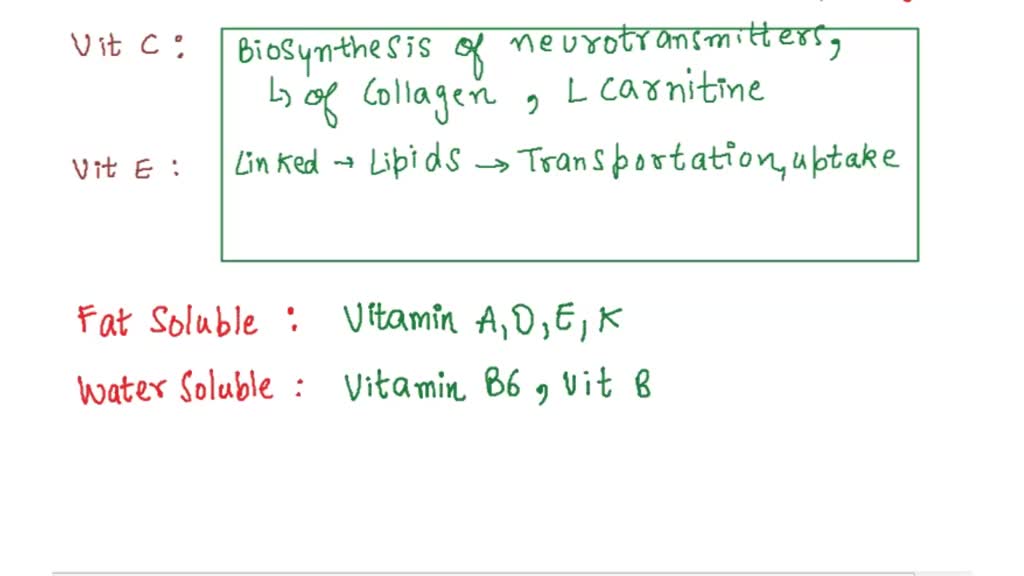 Vit C : Biosynthesis of neurotransmitters,
↳ of Collagen, L Carnitine
Vit E : Linked → Lipids → Transportation, uptake
Fat Soluble : Vitamin A, D, E, K
Water Soluble : Vitamin B6, Vit B